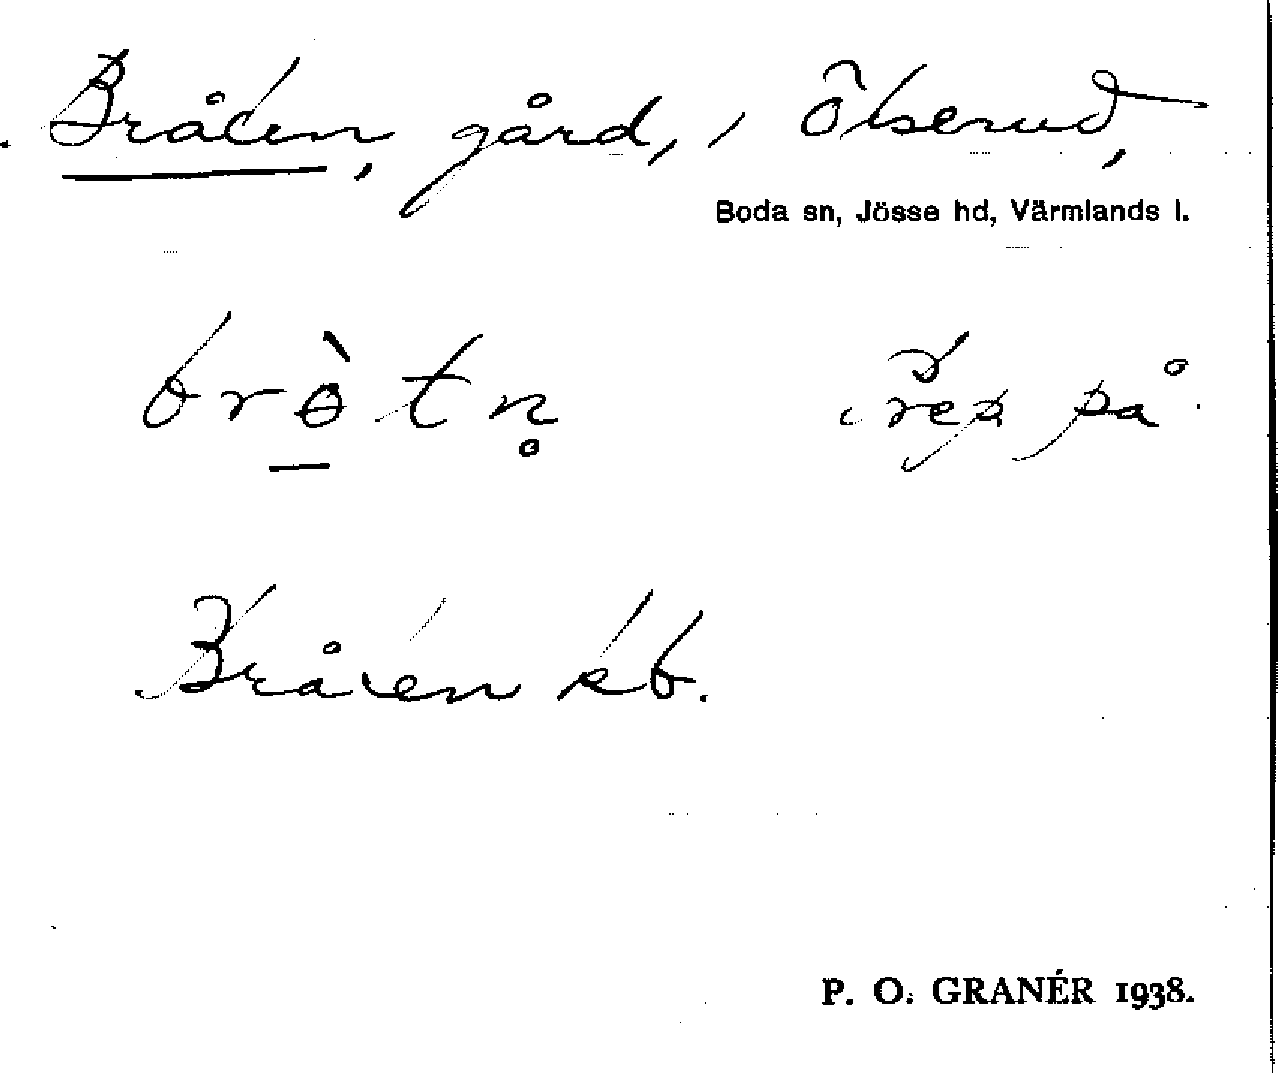 Bråten, gård, i Ölserud,
Boda sn, Jösse hd, Värmlands l.
brɵ̠̀tn̥ Prep på
Bråten kb.
P. O. GRANÉR 1938.